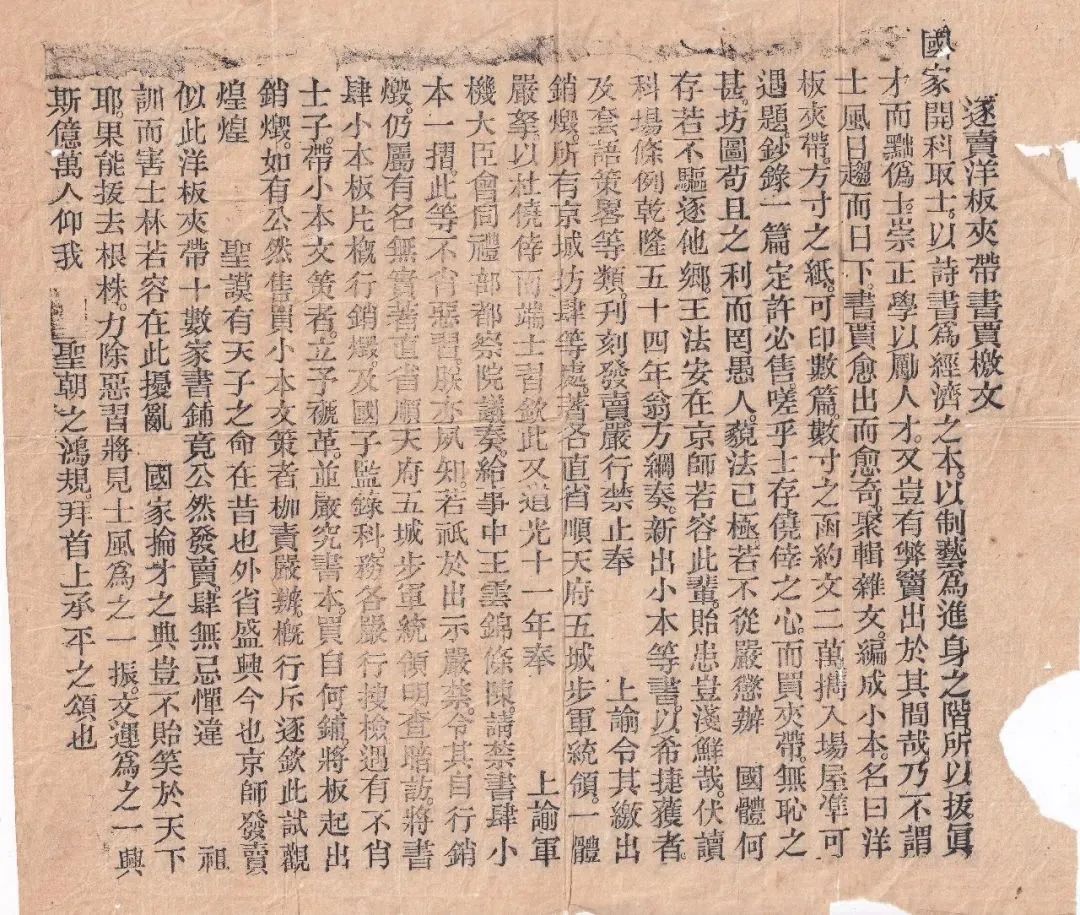 逐賣洋板夾帶書賈檄文
國家開科取士。以詩書爲經濟之本。以制藝爲進身之階。所以拔眞
才而黜僞士。崇正學以勵人才。又豈有弊竇出於其間哉。乃不謂
士風日趨而日下。書賈愈出而愈奇。聚輯雜文。編成小本。名曰洋
板夾帶。方寸之紙。可印數篇。數寸之函。約文二萬。攜入場屋。準可
遇題。鈔錄一篇。定許必售。嗟乎。士存僥倖之心。而買夾帶。無恥之
甚。坊圖苟且之利。而罔愚人。藐法已極。若不從嚴懲辦　國體何
存。若不驅逐他鄉。王法安在。京師若容此輩。貽患豈淺鮮哉。伏讀
科場條例。乾隆五十四年。翁方綱奏。新出小本等書。以希捷獲者。
及套語策畧等類。刊刻發賣。嚴行禁止。奉　上諭令其繳出
銷燬。所有京城坊肆等處。著各直省順天府五城步軍統領。一體
嚴拏。以杜僥倖。而端士習。欽此。又道光十一年奉　上諭軍
機大臣會同禮部都察院議奏。給事中王雲錦條陳請禁書肆小
本一摺。此等不肖惡習。朕亦夙知。若祇於出示嚴禁。令其自行銷
燬。仍屬有名無實。著直省順天府五城步軍統領。明查暗訪。將書
肆小本板片。槪行銷燬。及國子監錄科。務各嚴行搜檢。遇有不肖
士子。帶小本文策者。立予褫革。並嚴究書本。買自何鋪。將板起出
銷燬。如有公然售買小本文策者。枷責嚴辦。槪行斥逐。欽此。試觀
煌煌　聖謨。有天子之命在。昔也外省盛興。今也京師發賣
似此洋板夾帶。十數家書鋪。竟公然發賣。肆無忌憚。違　祖
訓而害士林。若容在此擾亂　國家掄才之典。豈不貽笑於天下
耶。果能拔去根株。力除惡習。將見士風爲之一振。文運爲之一興
斯億萬人仰我　聖朝之鴻規。拜首上承平之頌也